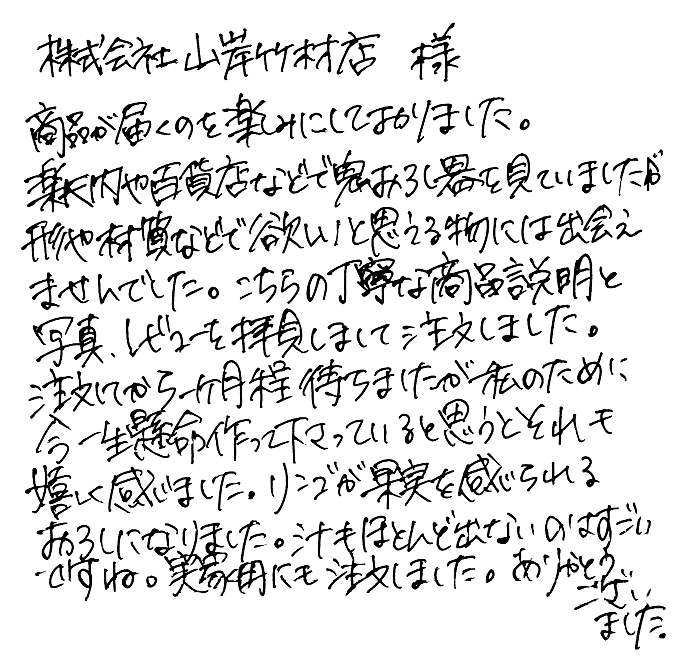 株式会社山岸竹材店 様
商品が届くのを楽しみにしておりました。
楽天内や百貨店などで鬼おろし器を見ていましたが
形や材質などで欲しい!と思える物には出会え
ませんでした。こちらの丁寧な商品説明と
写真、レビューを拝見しまして注文しました。
注文してから一ヶ月程待ちましたが私のために
今一生懸命作って下さっていると思うとそれも
嬉しく感じました。リンゴが果実を感じられる
おろしになりました。汁もほとんど出ないのはすごい
ですね。実家用にも注文しました。ありがとう
ござい
ました。